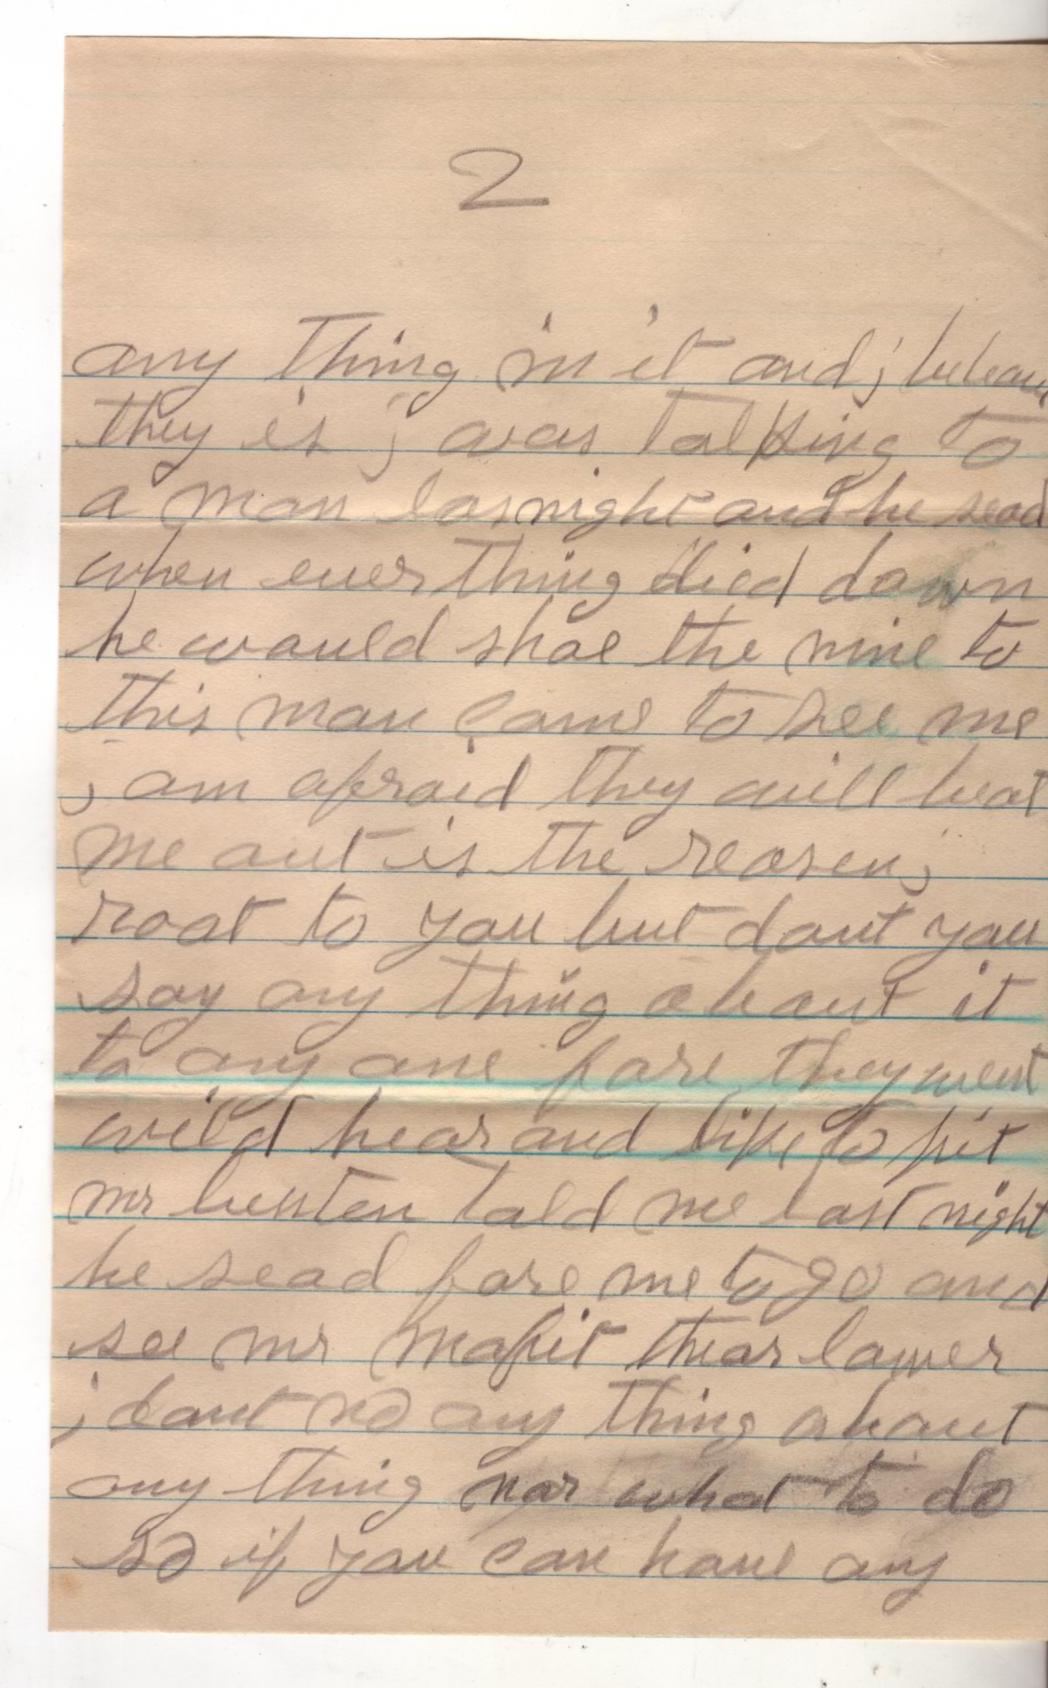 2
any thing in it and i beleave
they is i was talking to
a man lasnight and he sead
when ever thing died down
he would shoe the mine to
this man came to see me
i am afraid they will beat
me out is the reasen i
roat to you but dont you
say any thing about it
to any one fore they went
wild hear and like to fit
mr told me last night
he sead fore me to go and
see mr thear lawer
i dont no any thing about
any thing nor what to do
so if you can have any